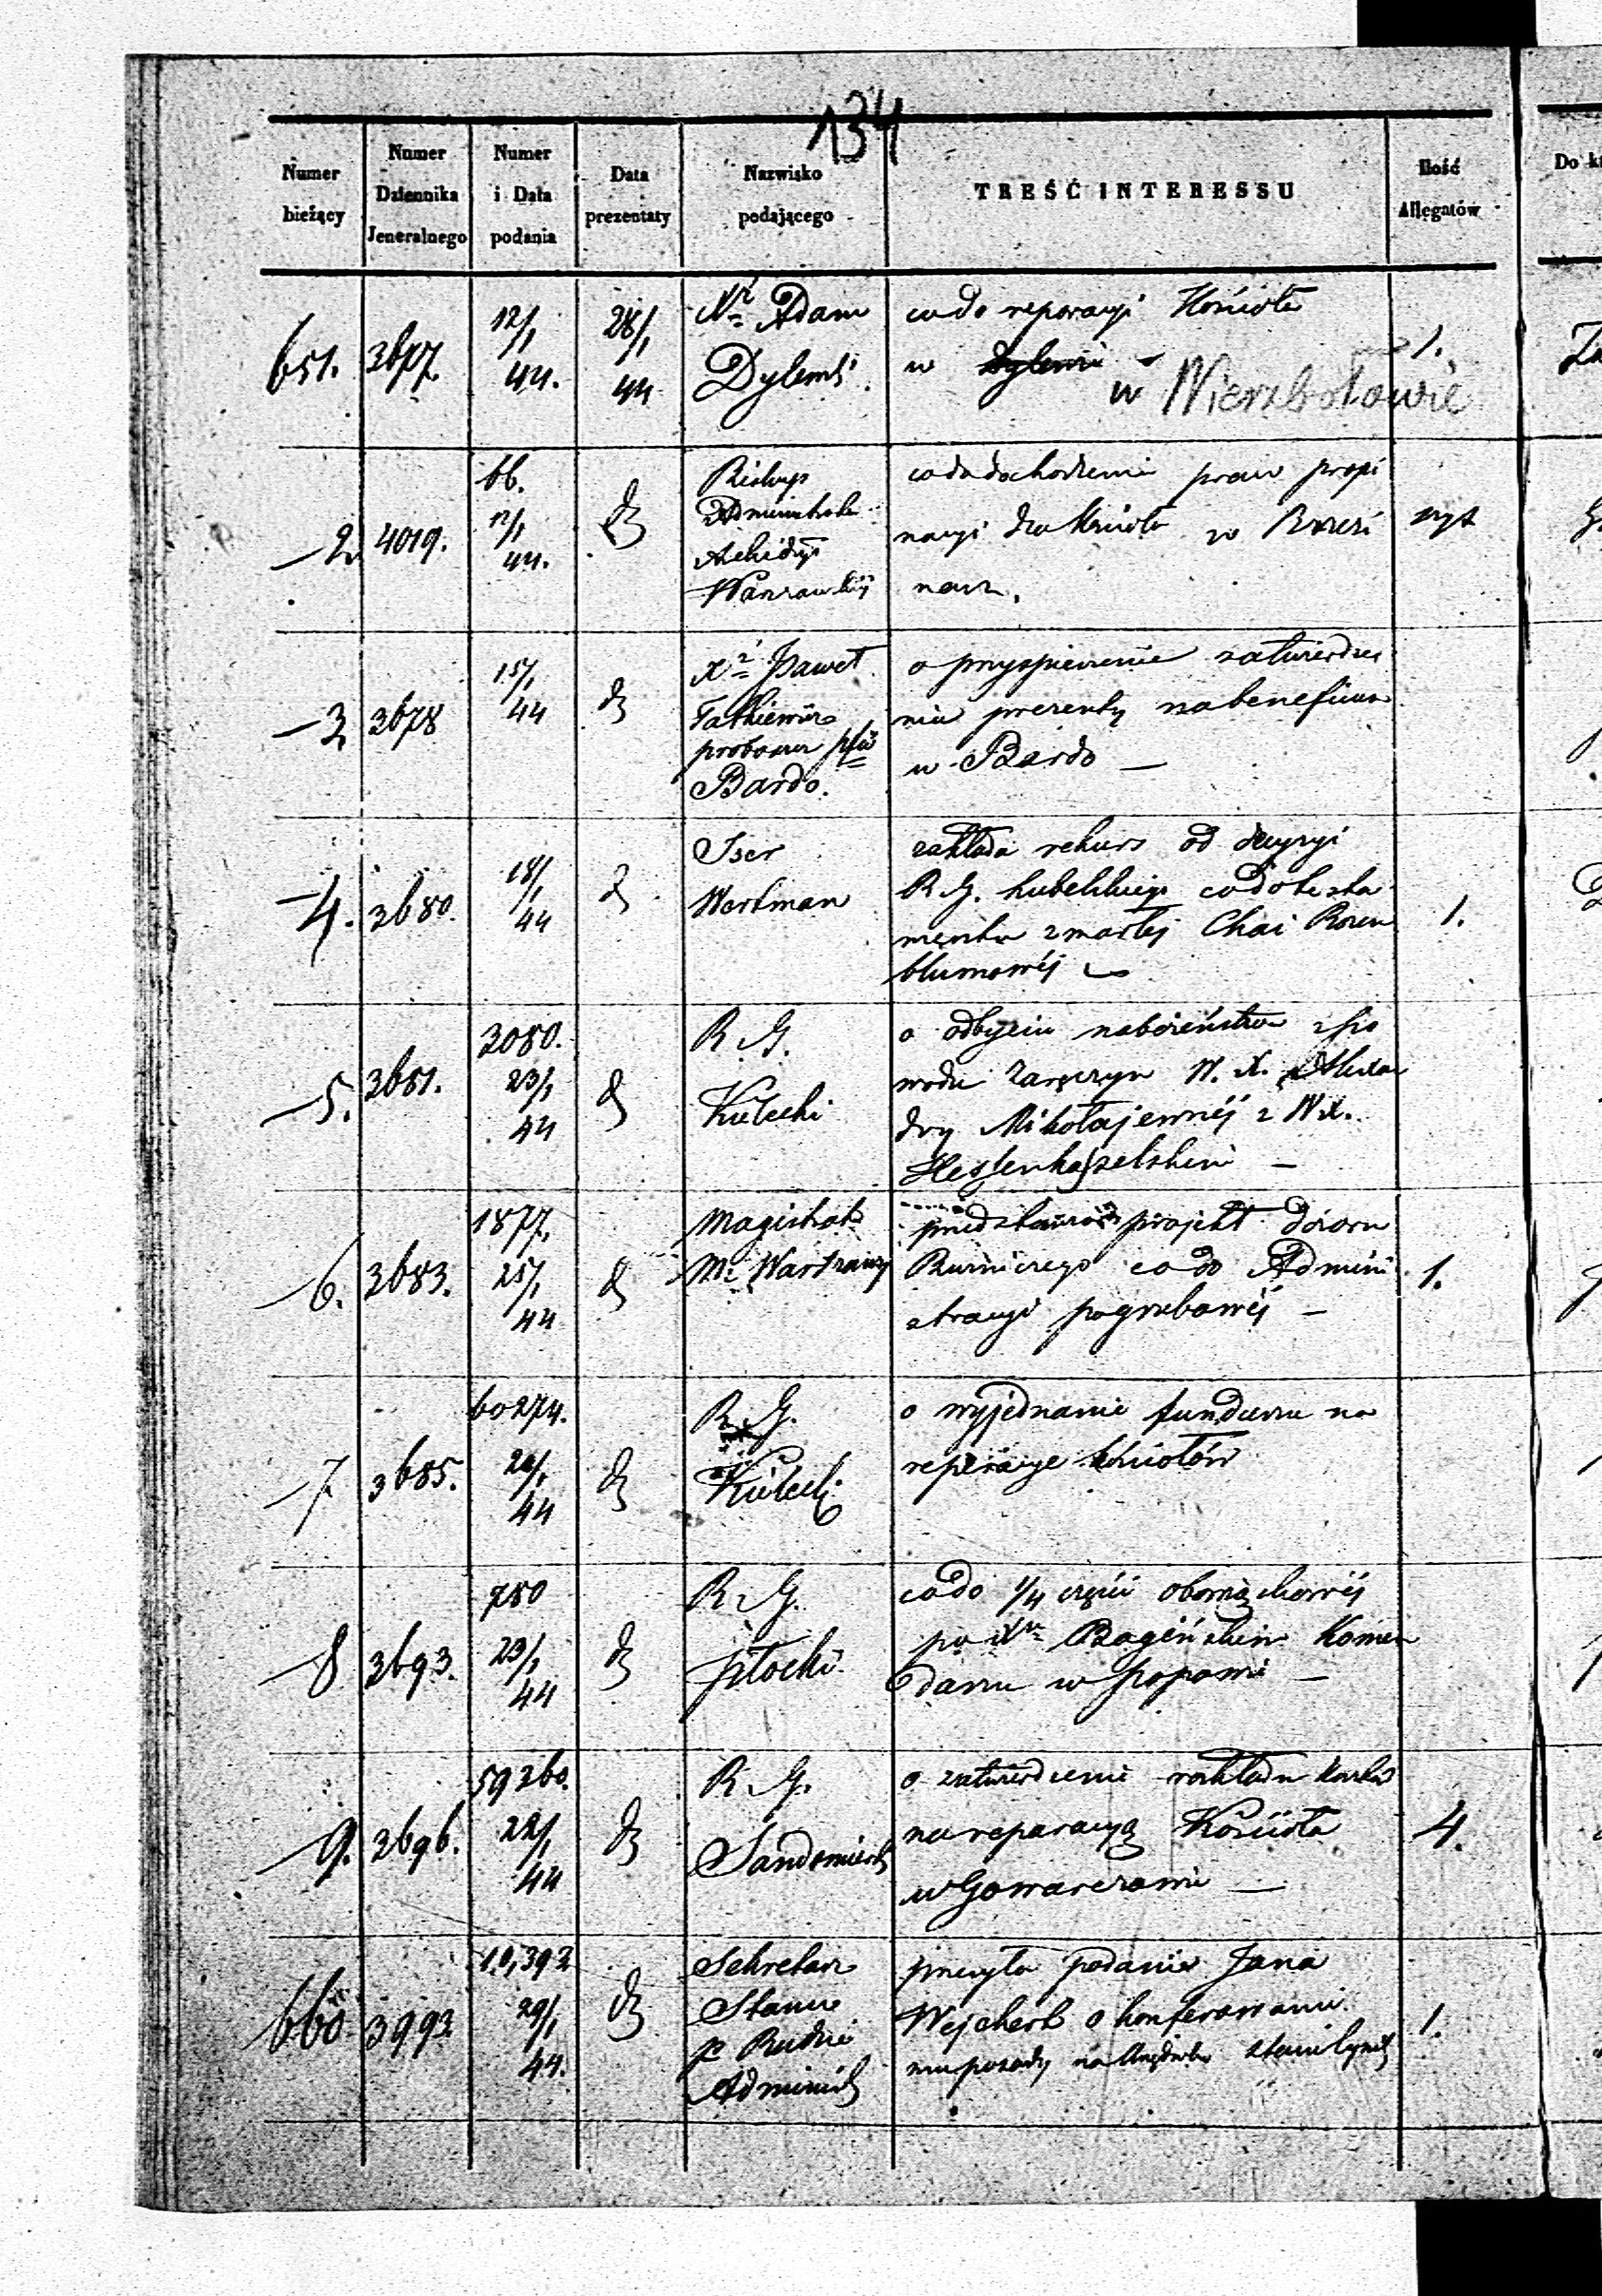 134
Numer bieżący
Numer Dziennika Jeneralnego
Numer i Data podania
Data prezentaty
Nazwisko podającego
TREŚĆ INTERESSU
Ilość Allegatów
Do
651. 3677. 12/1 44. 28/1 44 Adam
Dylews
co do reparacyi Kościoła
w
w Wierzbołowie
1.
2 4019. 66. 12/1 44.
Biskup
Administrator
Archidyi
Warszawskij
co do dochodzenia praw propi
nacyi dla Kościoła w Brzezi
nach.
3 3678 15/1 44
Xdz Paweł
proboszcz
Bardo.
o przyspieszenie zatwierdze
nia prezenty na beneficium
w Bardo —
4. 3680. 18/1 44
Iser
Wortman
zakłada rekurs od decyzyi
R. G. Lubelskiego co do testa
mentu zmarłej Chai Rozen
blumowéj
1.
5. 3681. 3080. 23/1 44
R. G.
Kielecki
o odbyciu nabożeństwa z po
wodu zaręczyn W. X. Alexan
dry Mikołajewnéj z W. X.
Hessenkasselskim —
6. 3683. 1877. 25/1 44
Magistrat
M. Warszawy
przedstawia projekt dozoru
Bużniczego co do Admini
stracyi pogrzebowéj —
1.
7 3685. 60274. 26/1 44
R. G.
Kielecki
o wyjednanie funduszu na
reperacye Kościołów
8 3693. 780 23/1 44
R. G.
Płocki
co do 1/4 części
po Xdzu Bagińskim Komen
darzu w Popowie —
9. 3696. 59260. 22/1 44
R. G.
Sandomierski
o zatwierdzenie rozkładu kosztów
na reparacyą Kościoła
w Gowarczowie —
4.
660 3993 10,393 29/1 44.
Sekretarz
Stanu
p Radzie
Administr
przesyła podanie Jana
Wejchert o konferowanie
mu posady na Urzędnika Stanu Cywil
1.